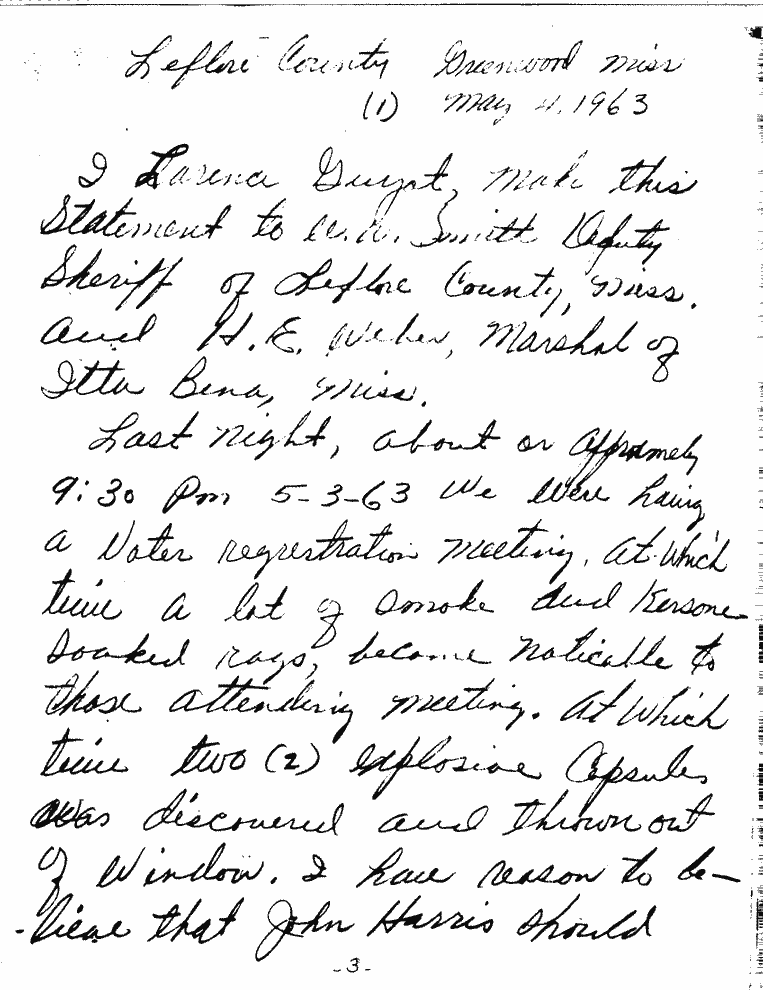 Leflore County Greenwood Miss
(1) May 4, 1963
I Larence Guyot, Make this
Statement to W.A. Smith Deputy
Sheriff of Leflore County, Miss.
and H.E. Weber, Marshal of
Itta Bena, Miss.
Last Night, about or
9:30 Pm 5-3-63 We Were having
a Voter regrestration Meeting. At Which
time a lot of smoke and Kersone
soaked rags, became Noticable to
those attending Meeting. At Which
time two (2) explosive Capsules
was discovered and thrown out
of Window. I have reason to be-
-lieve that John Harris should
-3-